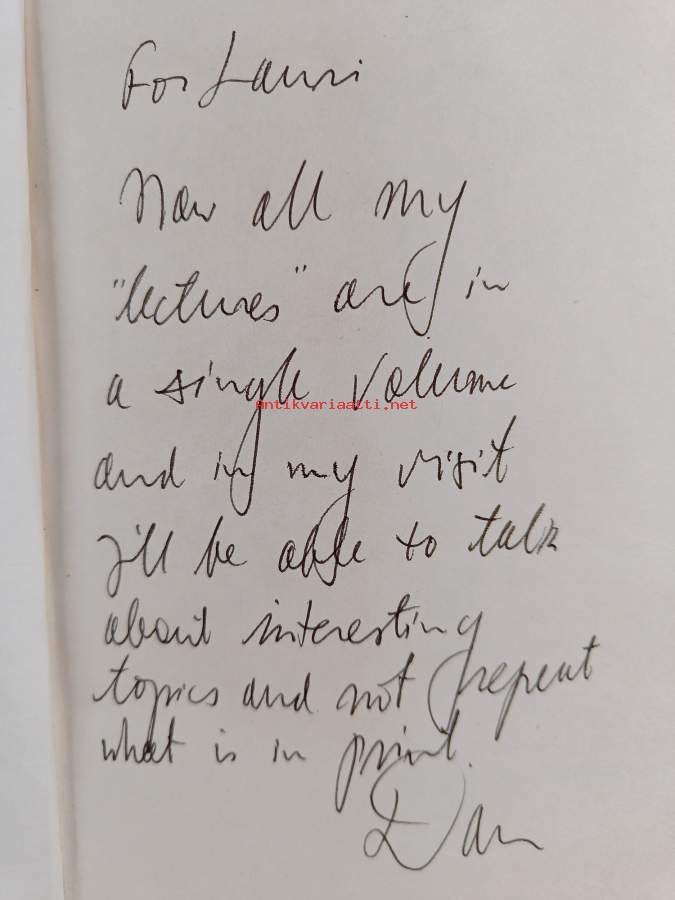 For Lauri
Now all my
"lectures" are in
a single volume
Antikvariaatti.net
and in my visit
I'll be able to talk
about interesting
topics and not repeat
what is in print.
Dan